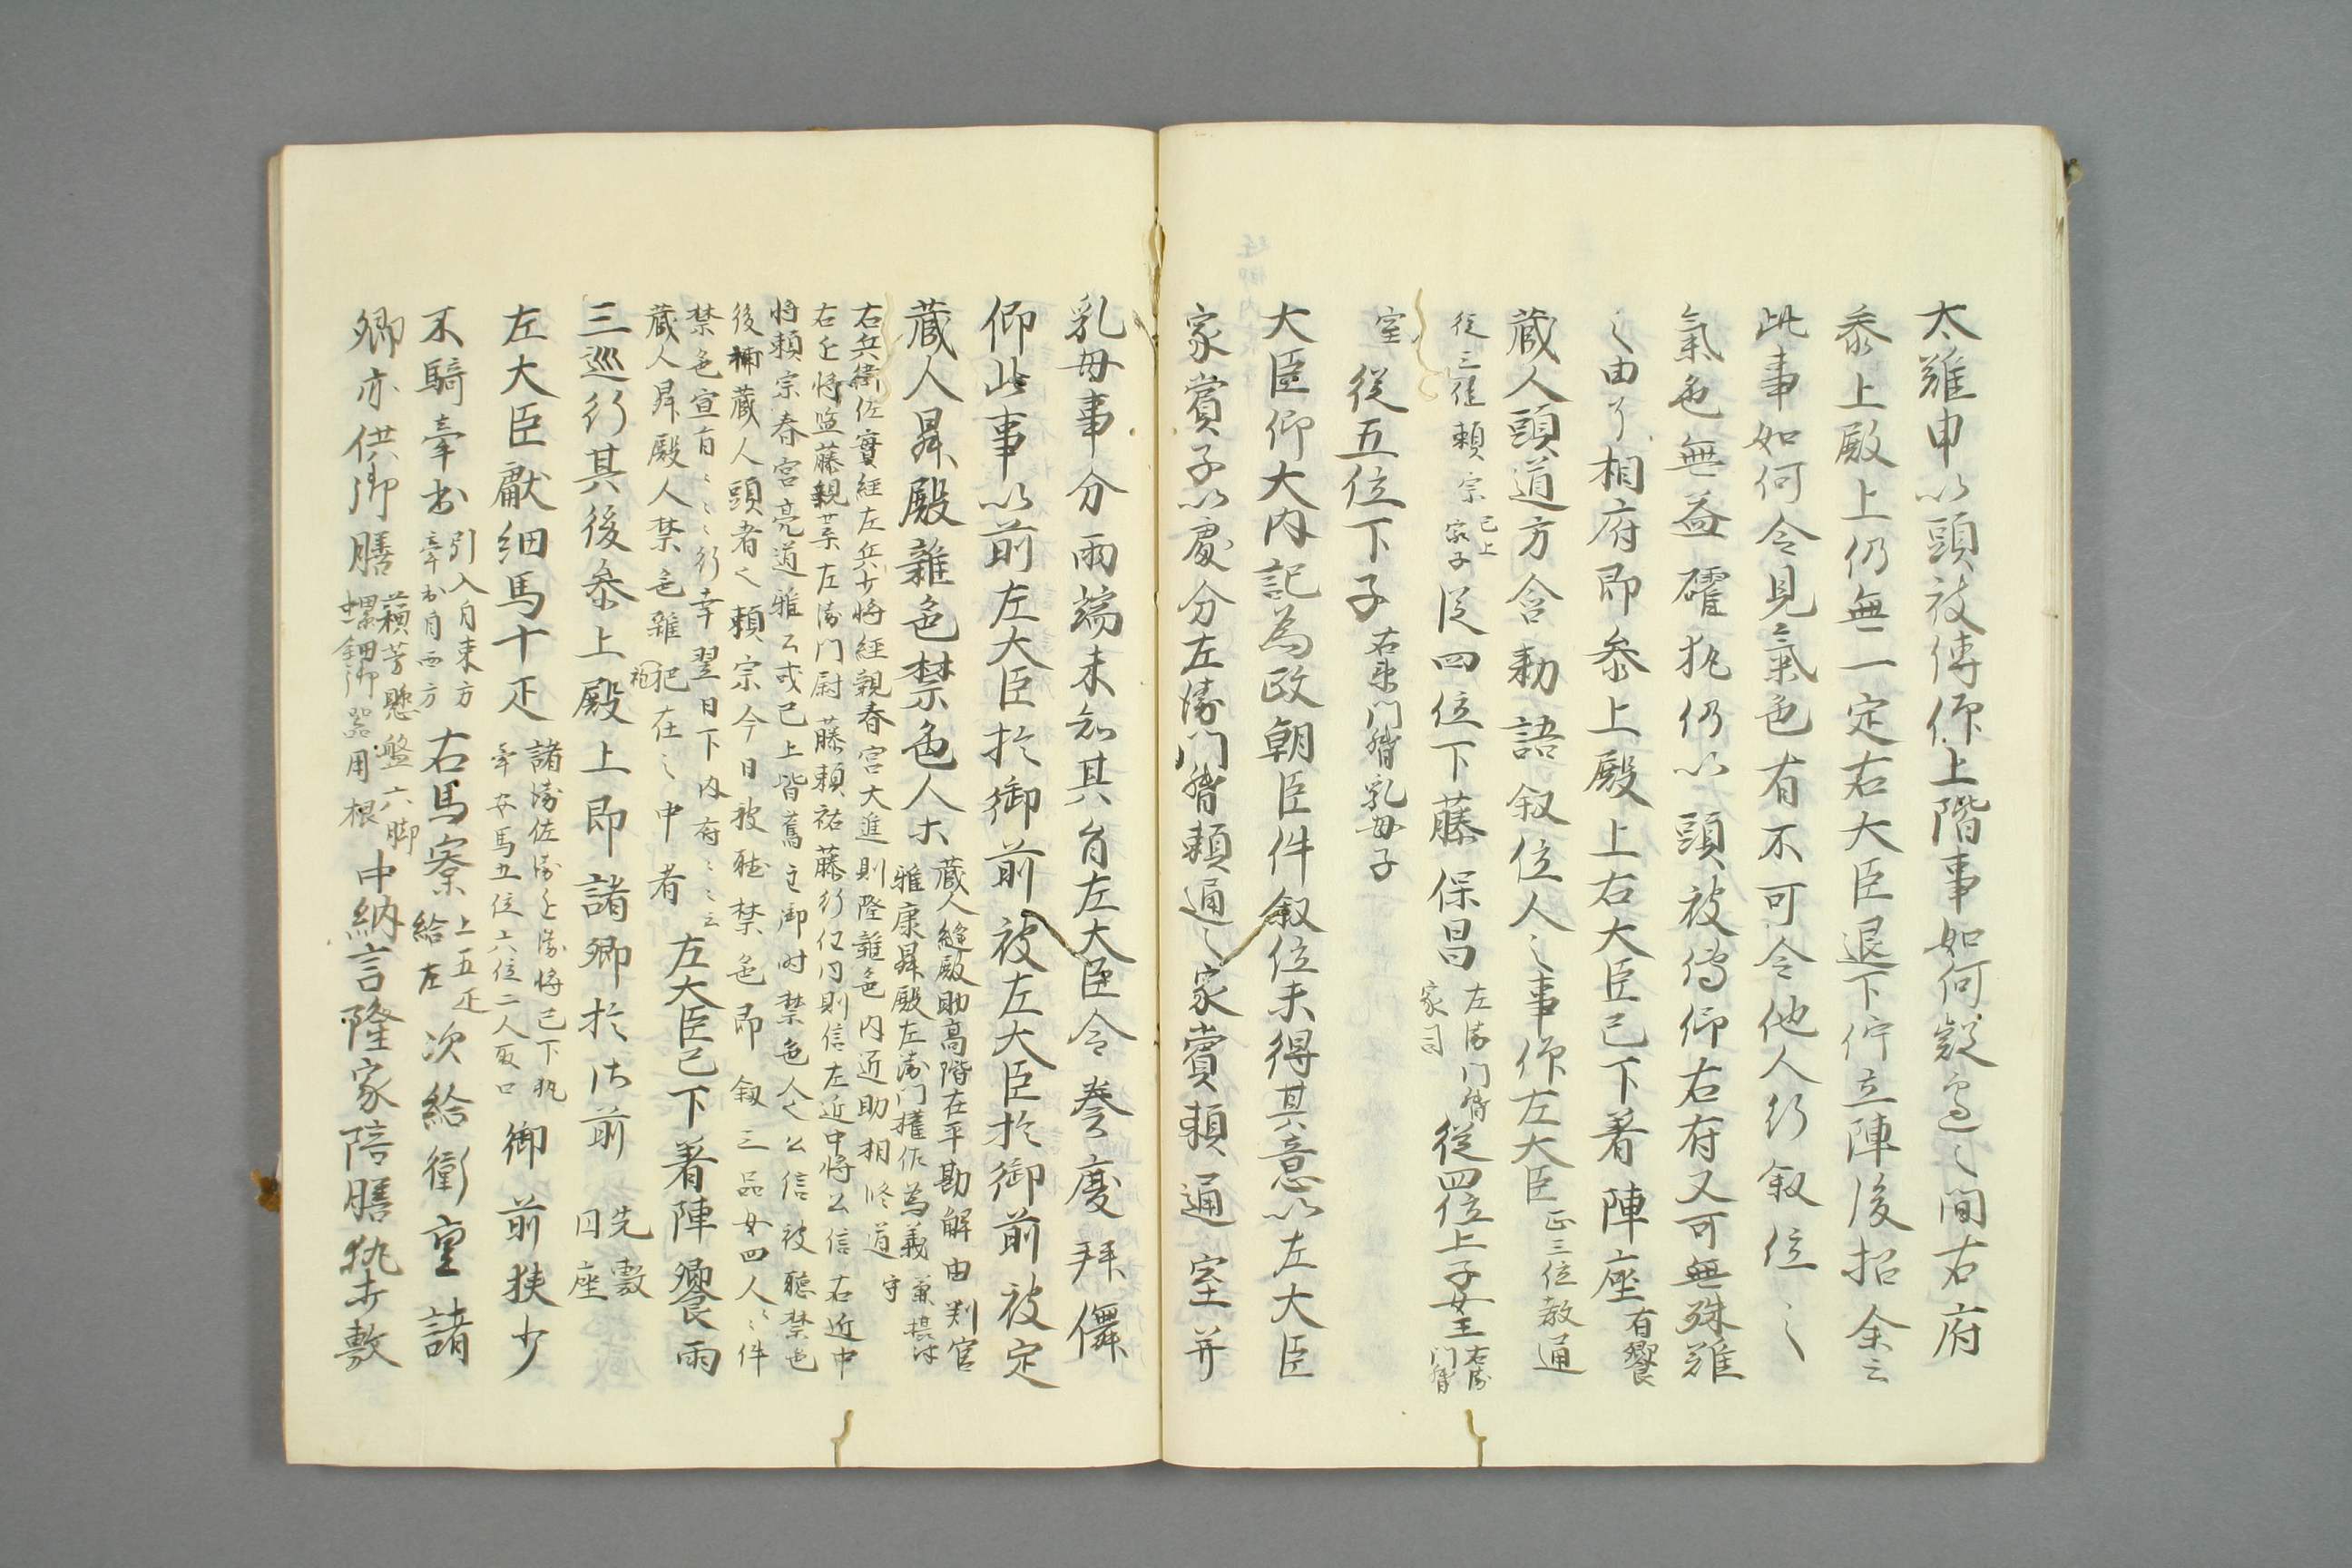 太難申以頭被傳仰上階事如何疑慮之間右府
參上殿上仍無一定右大臣退下佇立陣後招余云
此事如何令見氣色有不可令他人行叙位之
氣色無益確執仍以頭被傳仰右府又可無殊難
之由了相府即參上殿上右大臣已下着陣座有饗
蔵人頭道方含勅語叙位人之事仰左大臣正三位教通
従三位頼宗已上家子従四位下藤保昌左衛門督家司従四位上子女王右衛門督
室従五位下子右衛門督乳母子
大臣仰大内記為政朝臣件叙位未得其意以左大臣
家賞子以處分左衛門督頼通之家賞頼通室并
乳母事分兩端未知其旨左大臣令奏慶拜儛
仰此事以前左大臣於御前被左大臣於御前被定
蔵人昇殿雜色禁色人等蔵人縫殿助高階在平勘解由判官
雅康昇殿左衛門權佐為義兼摂津守
右兵衛佐實經左兵少将經親春宮大進則隆雜色内近助相修道
右近将監藤親業左衛門尉藤頼祐藤行任同則信左近中将公信右近中
将頼宗春宮亮道雅云或已上皆舊主御时禁色人々公信被聽禁色
後補蔵人頭者々頼宗今日被聴禁色即叙三品女四人々件
禁色宣旨々々行幸翌日下内府々々云
蔵人昇殿人禁色雜袍犯在之中者左大臣已下着陣饗兩
三巡行其後參上殿上即諸卿於御前先敷円座
左大臣獻細馬十疋諸衛佐衛近衛将已下執
牽安馬五位六位二人取口御前挟少
不騎牽出引入自東方
牽出自西方右馬寮上五疋
給左次給衛重諸
卿亦供御膳蘓芳懸盤六脚
螺鈿御器用根中納言隆家陪膳執打敷